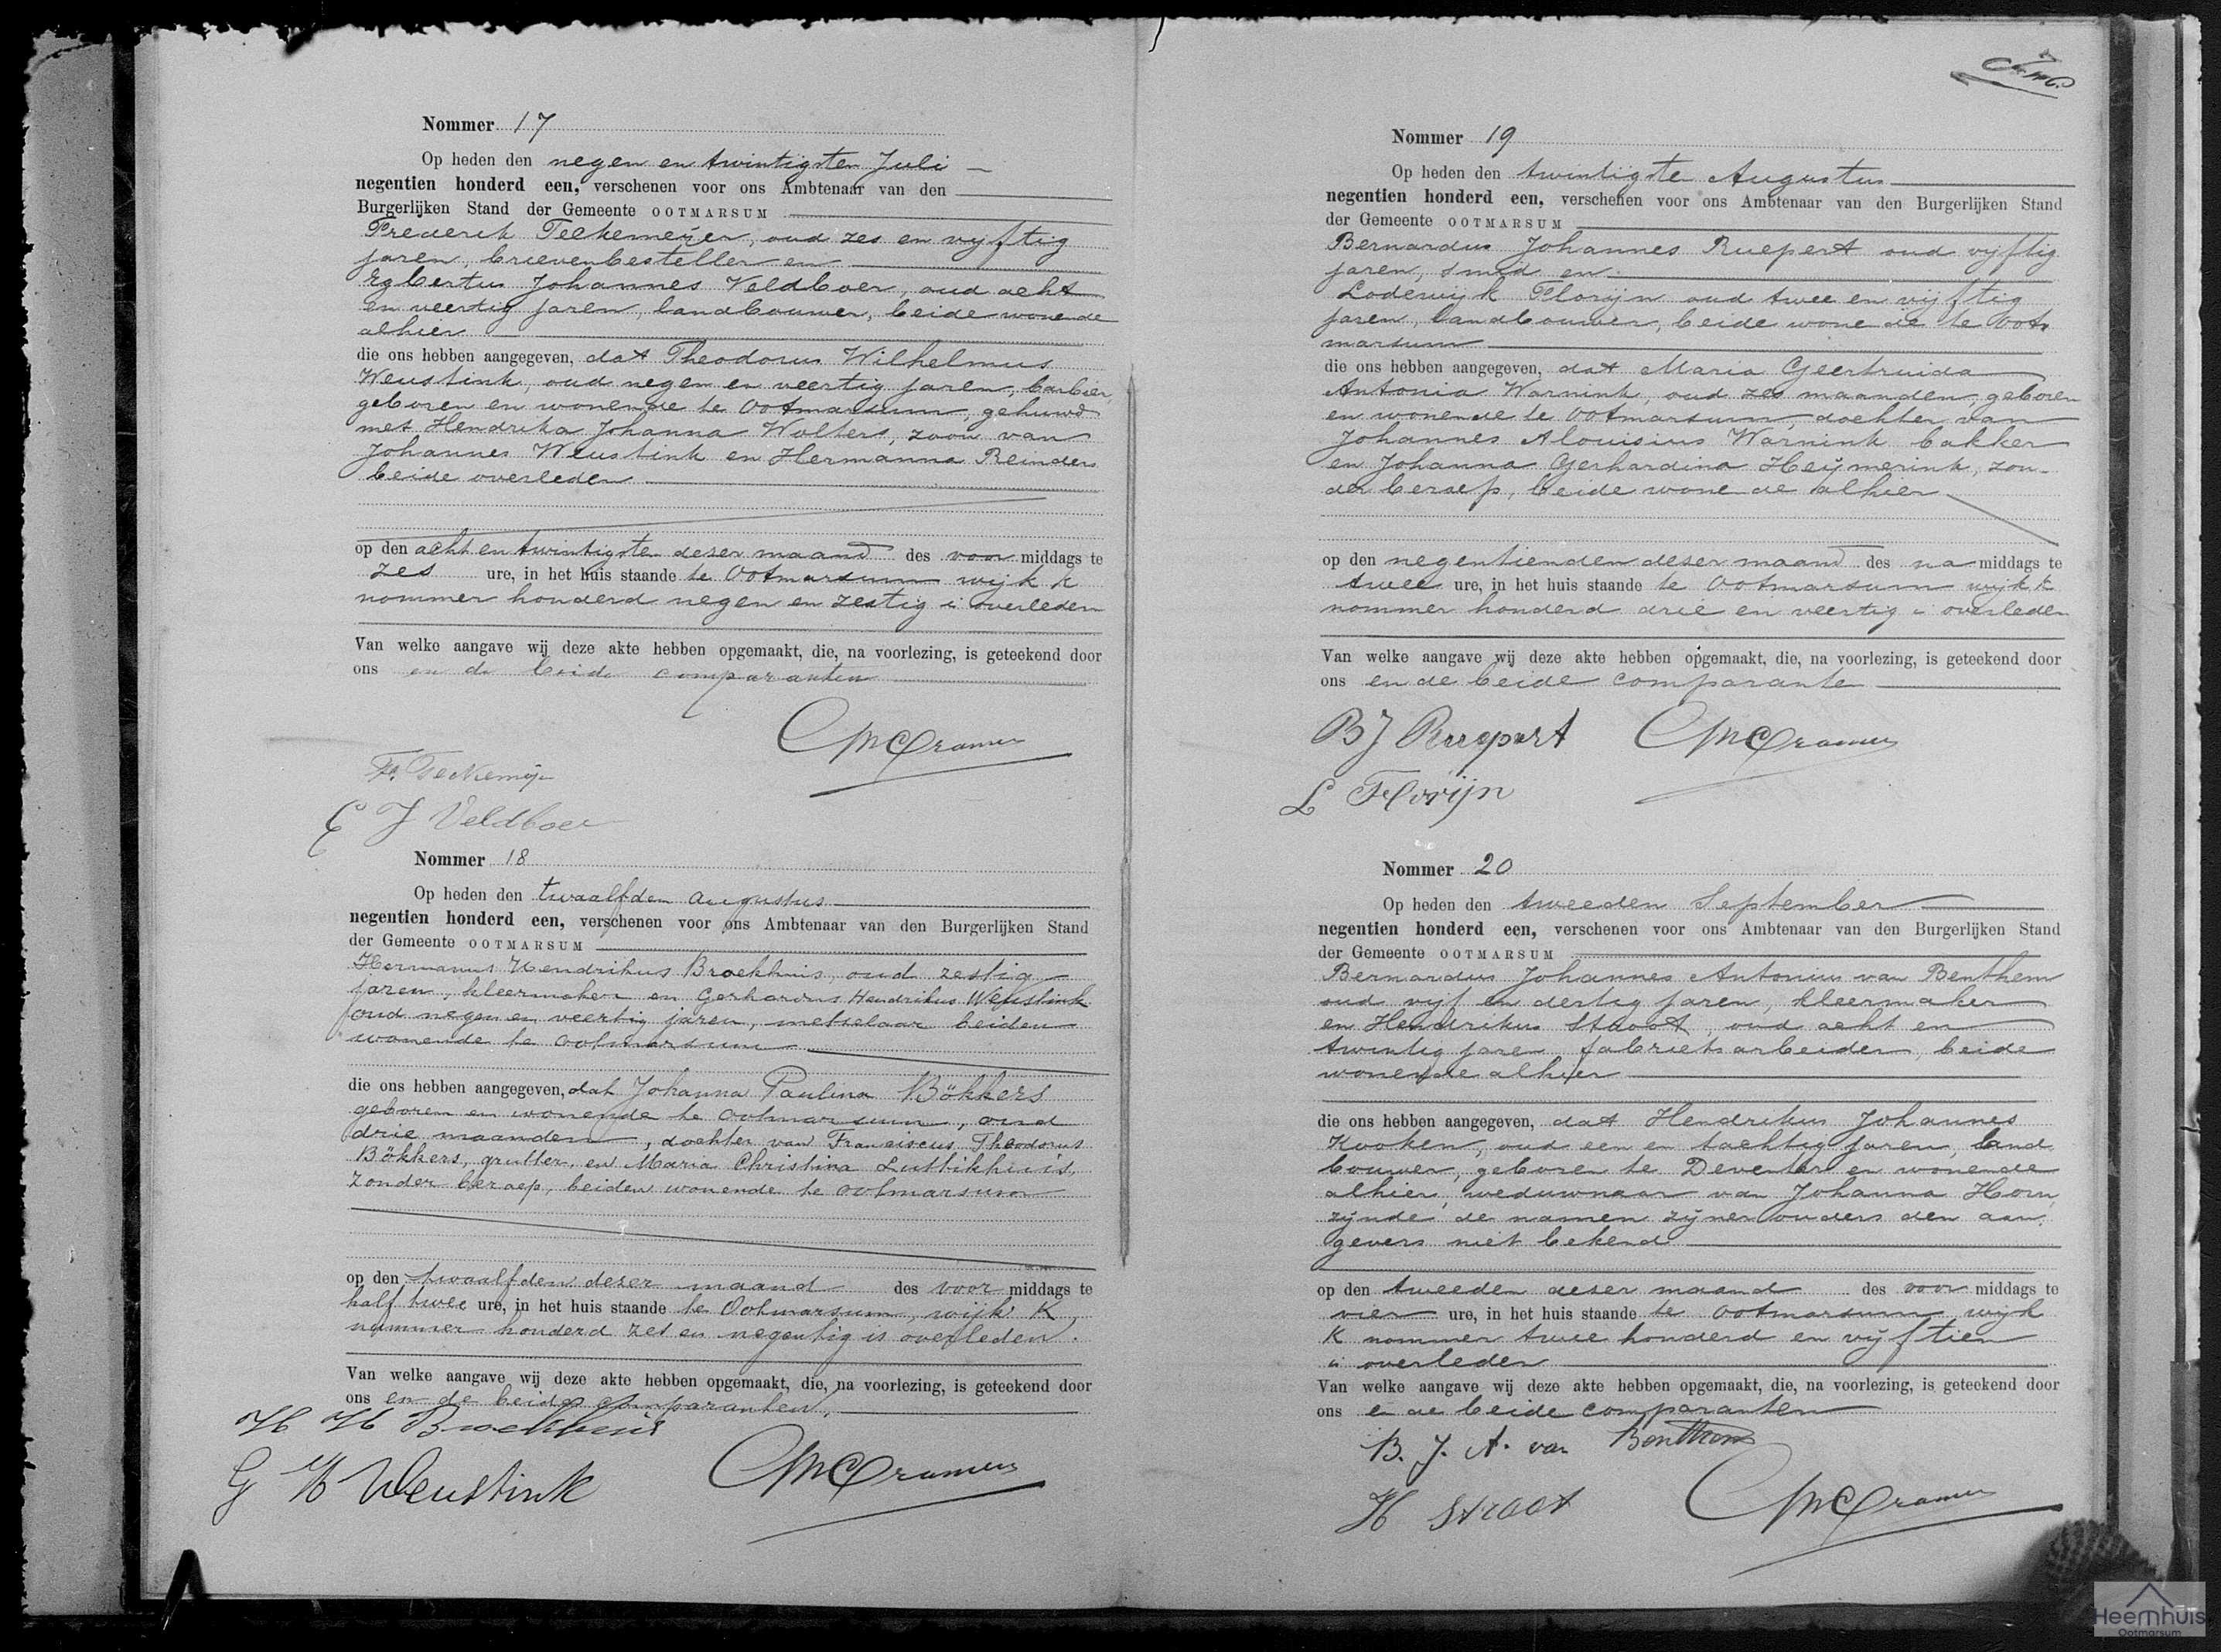 Nommer 17
Op heden den negen en twintigsten Juli
negentien honderd een, verschenen voor ons Ambtenaar van den
Burgerlijken Stand der Gemeente OOTMARSUM
Frederik Teekemeijer, oud zes en vyftig
jaren, brievenbesteller en
Egbertus Johannes Veldboer, oud acht
en veertig jaren, landbouwer, beide wonende
alhier
die ons hebben aangegeven, dat Theodorus Wilhelmus
Weustink, oud negen en veertig jaren, barbier,
geboren en wonende te Ootmarsum, gehuwd
met Hendrika Johanna Wolters, zoon van
Johannes Weustink en Hermanna Reinders
beide overleden
op den acht en twintigsten deser maand des voor middags te
zes ure, in het huis staande te Ootmarsum wijk K
nommer honderd negen en zestig is overleden
Van welke aangave wij deze akte hebben opgemaakt, die, na voorlezing, is geteekend door
ons en de beide comparanten
Cramer
E J Veldboer
Nommer 18
Op heden den twaalfden Augustus
negentien honderd een, verschenen voor ons Ambtenaar van den Burgerlijken Stand
der Gemeente OOTMARSUM
Hermannus Hendrikus Broekhuis, oud zestig
jaren, kleermaker en Gerhardus Hendrikus Weustink
oud negen en veertig jaren, metselaar beiden
wonende te Ootmarsum
die ons hebben aangegeven, dat Johanna Paulina Bökkers
geboren en wonende te Ootmarsum, oud
drie maanden, dochter van Franciscus Theodorus
Bökkers, grutter, en Maria Christina Lutbikhuis,
zonder beroep, beiden wonende te Ootmarsum
op den twaalfden dezer maand des voor middags te
half twee ure, in het huis staande te Ootmarsum, wijk K,
nummer honderd zes en negentig is overleden.
Van welke aangave wij deze akte hebben opgemaakt, die, na voorlezing, is geteekend door
ons en de beide comparanten,
H H Broekhuis
G H Weustink
Cramer
Nommer 19
Op heden den twintigste Augustus
negentien honderd een, verschenen voor ons Ambtenaar van den Burgerlijken Stand
der Gemeente OOTMARSUM
Bernardus Johannes Ruepert oud vyftig
jaren, smid en
Lodewijk Florijn oud twee en vijftig
jaren, landbouwer, beide wonende te Oot
marsum
die ons hebben aangegeven, dat Maria Geertruida
Antonia Warnink, oud zes maanden, geboren
en wonende te Ootmarsum, dochter van
Johannes Alouisius Warnink bakker
en Johanna Gerhardina Heijmerink, zon-
der beroep, beide wonende alhier
op den negentienden deser maand des na middags te
twee ure, in het huis staande te Ootmarsum wijk K
nommer honderd drie en veertig is overleden
Van welke aangave wij deze akte hebben opgemaakt, die, na voorlezing, is geteekend door
ons en de beide comparante
B J Ruepert
Cramer
L Florijn
Nommer 20
Op heden den tweeden September
negentien honderd een, verschenen voor ons Ambtenaar van den Burgerlijken Stand
der Gemeente OOTMARSUM
Bernardus Johannes Antonius van Benthem
oud vijf en dertig jaren, kleermaker
en Hendrikus Stroot, oud acht en
twintig jaren fabrieksarbeider, beide
wonende alhier
die ons hebben aangegeven, dat Hendrikus Johannes
Kooken, oud een en tachtig jaren, land
bouwer, geboren te Deventer en wonende
alhier, weduwnaar van Johanna Horn,
zijnde de namen zijner ouders den aan
gevers niet bekend
op den tweeden deser maand des voor middags te
vier ure, in het huis staande te Ootmarsum wijk
K nommer twee honderd en vijftien
is overleden
Van welke aangave wij deze akte hebben opgemaakt, die, na voorlezing, is geteekend door
ons en de beide comparanten
B. J. A. van Benthem
H Stroot
Cramer
Heemhuis
Ootmarsum